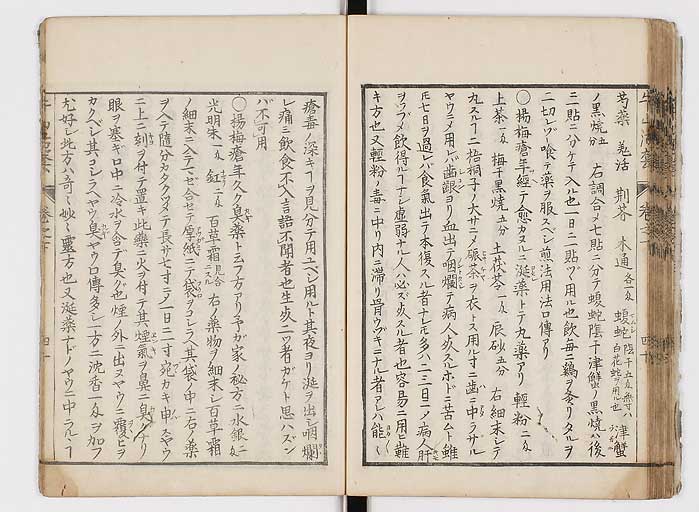 芍藥 羗活 荆芥 木通 各一匁 蝮蛇 陰干五匁無キハ白花蛇ヲ用ル也 津蟹
ノ黒焼五匁 右調合メ七貼ニ分テ蝮蛇陰干津蟹ノ黒焼ハ後
三貼ニ分ケテ入ル也一日ニ二貼ヅヽ用ル也飲毎ニ鷄ヲ煮リタルヲ
二切レヅヽ喰テ藥ヲ服スベシ煎法用法口傳アリ
〇楊梅瘡年經テ愈カヌルニ涎藥トテ丸藥アリ 輕粉二匁
上茶一匁 梅干黒焼五分 土茯苓一匁 辰砂五分 右細末シテ
丸スルコ梧桐子ノ大サニメ碾茶ヲ衣トス用ル寸ニ歯ニ中ラザル
ヤウニメ用ハバ歯齦ヨリ血出テ咽爛テ病人炊スルホドニ苦ムト雖
七日ヲ過レハ食氣出テ本復スル者ナレ𪜈多ハ二三日ニノ病人肝
ヲツブメ飲得ルコナシ虚弱ナル人ハ必ズ炊スル者也容易ニ用ヒ難
キ方也又輕粉ノ毒ニ中リ内ニ滞リ骨ウヅキニナル者アレハ能〻
瘡毒ノ深キコヲ見分テ用ユベシ用ルト其夜ヨリ涎ヲ出シ咽爛
レ痛ミ飲食不入言語不聞者也生炊二ツ者ガケト思ハズン
バ不可用
〇楊梅瘡年久ク臭藥ト云フ方アリ予ガ家ノ秘方ニ水銀二匁
光明朱一匁 釭二匁 百草霜見合ニスル 右ノ藥物ヲ細末シ百草霜
ノ細末ニ入テヘセ合セテ厚紙ニテ袋ヲコシラヘ其袋ノ中ニ右ノ藥
ヲ入テ隨分カタククヽメテ長サ七寸ニノ一日二寸宛カキ申スヤウ
ニ上ニ刻ヲ付テ置キ此藥ニ火ヲ付テ其煙氣ヲ鼻ニ臭クナリ
眼ヲ塞ギ口中ニ冷水ヲ含テ臭グ也煙ノ外ニ出ヌヤウニ覆ヒヲ
カクベシ其コシラヘヤウ臭ヤウ口傳多シ一方ニ沈香一匁ヲ加フ
尤好シ此方ハ奇〻妙〻靈方也又涎藥ナドノヤウニ中ラルヽコ